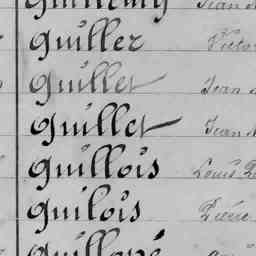 Guiller Victo
Guillet Jean
Guillet Jean
Guillois Louis
Guilois Pierre